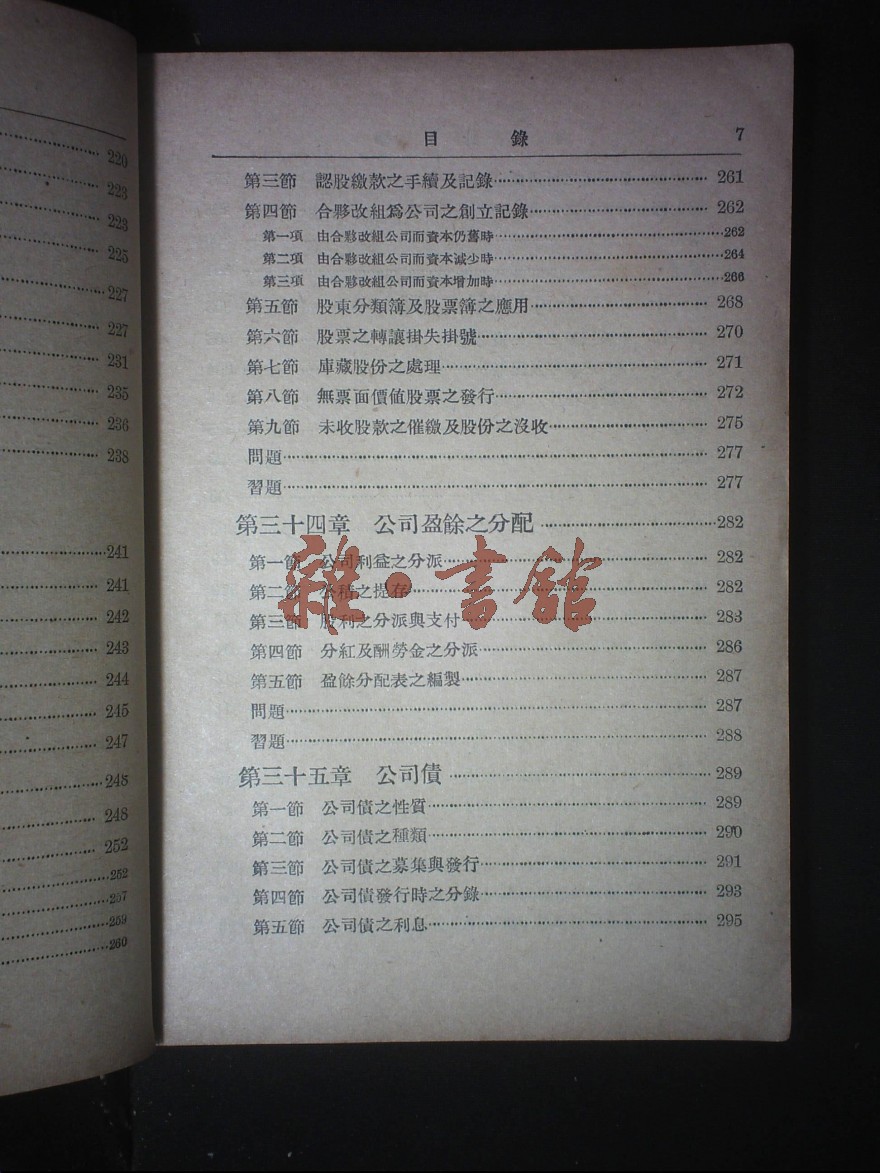 220
223
223
225
227
227
231
235
236
238
241
241
242
243
244
245
247
248
248
252
252
257
259
260
目錄 7
第三節 認股繳款之手續及記錄 261
第四節 合夥改組爲公司之創立記錄 262
第一項 由合夥改組公司而資本仍舊時 262
第二項 由合夥改組公司而資本減少時 264
第三項 由合夥改組公司而資本增加時 266
第五節 股東分類簿及股票簿之應用 268
第六節 股票之轉讓掛失掛號 270
第七節 庫藏股份之處理 271
第八節 無票面價值股票之發行 272
第九節 未收股款之催繳及股份之沒收 275
問題 277
習題 277
第三十四章 公司盈餘之分配 282
第一節 公司利益之分派 282
第二節 公積之提存 282
第三節 股利之分派與支付 283
第四節 分紅及酬勞金之分派 286
第五節 盈餘分配表之編製 287
問題 287
習題 288
第三十五章 公司債 289
第一節 公司債之性質 289
第二節 公司債之種類 290
第三節 公司債之募集與發行 291
第四節 公司債發行時之分錄 293
第五節 公司債之利息 295
雜·書館